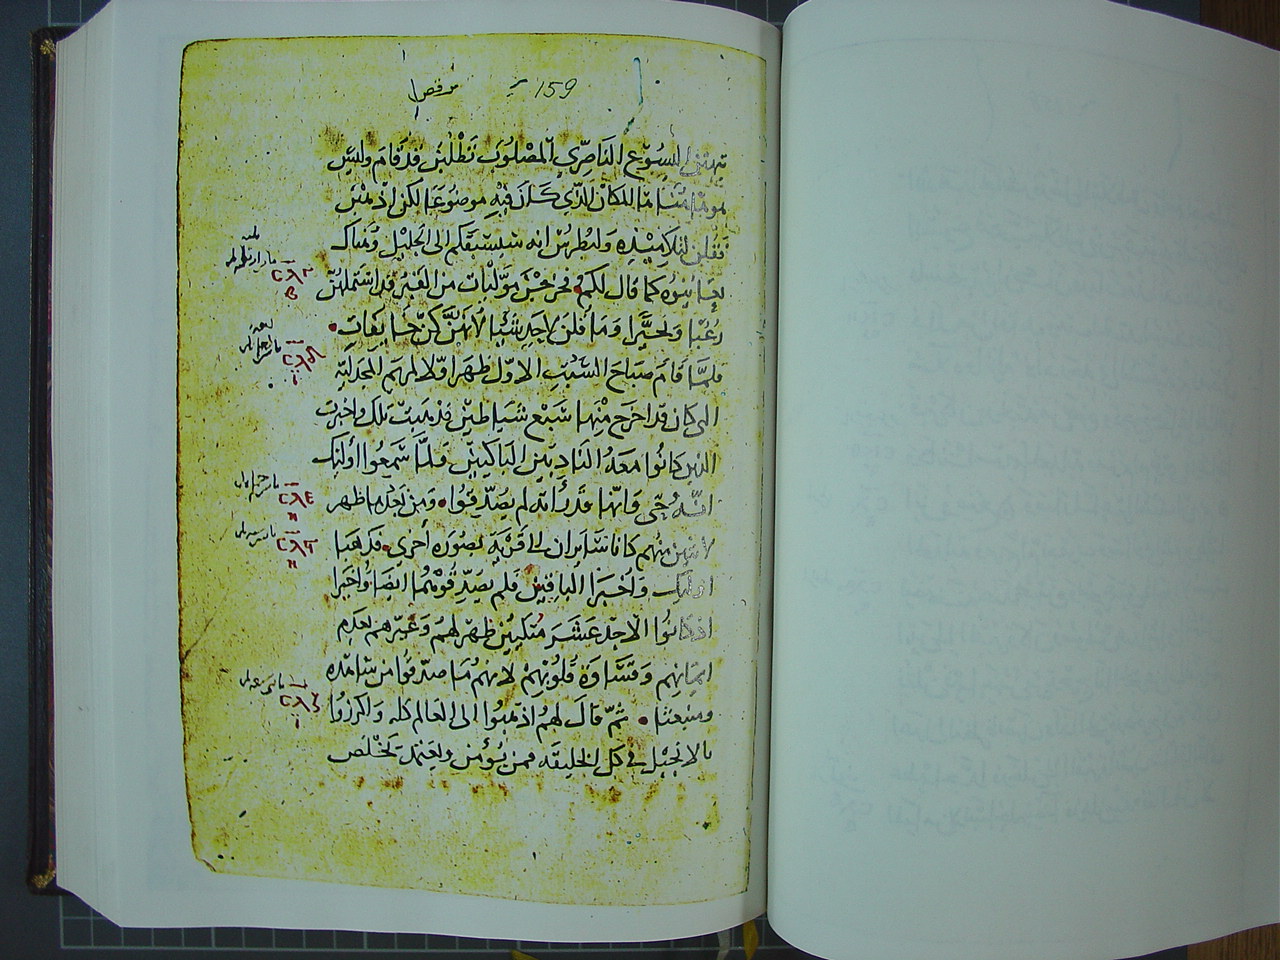 مرقص
159
تبهتن ليسوع الناصري المصلوب تطلبن قد قام وليس
هوها هنا هاهما المكان الذي كان فيه موضوعا لكن اذهبن
فقلن لتلاميذه ولبطرس انه سيسبقكم الى الجليل وهناك
تعاينوه كما قال لكم فخرجن موليات من القبر قد اشتملهن
رعبا وتحيرا وما قلن لاحد شيئا لانهن كن خايفات
فلما قام صباح السبت الاول ظهر اولا لمريم المجدلية
التي كان قد اخرج منها سبع شياطين فذهبت تلك واخبرت
الذين كانوا معه النادبين الباكيين فلما سمعوا اولئك
انه حي وانها قد راته لم يصدقوا ومن بعد هذا ظهر
لاثنين منهم كانا سايران الى قرية بصورة اخرى فذهبا
اوليك واخبرا الباقين فلم يصدقوهما ايضا واخيرا
اذ كانوا الاحد عشر متكيين ظهر لهم وعيرهم لعدم
ايمانهم وقساوة قلوبهم لانهم ما صدقوا من شاهده
ومنبعثا ثم قال لهم اذهبوا الى العالم كله واكرزوا
بالانجيل في كل الخليقه فمن يؤمن ويعتمد يخلص